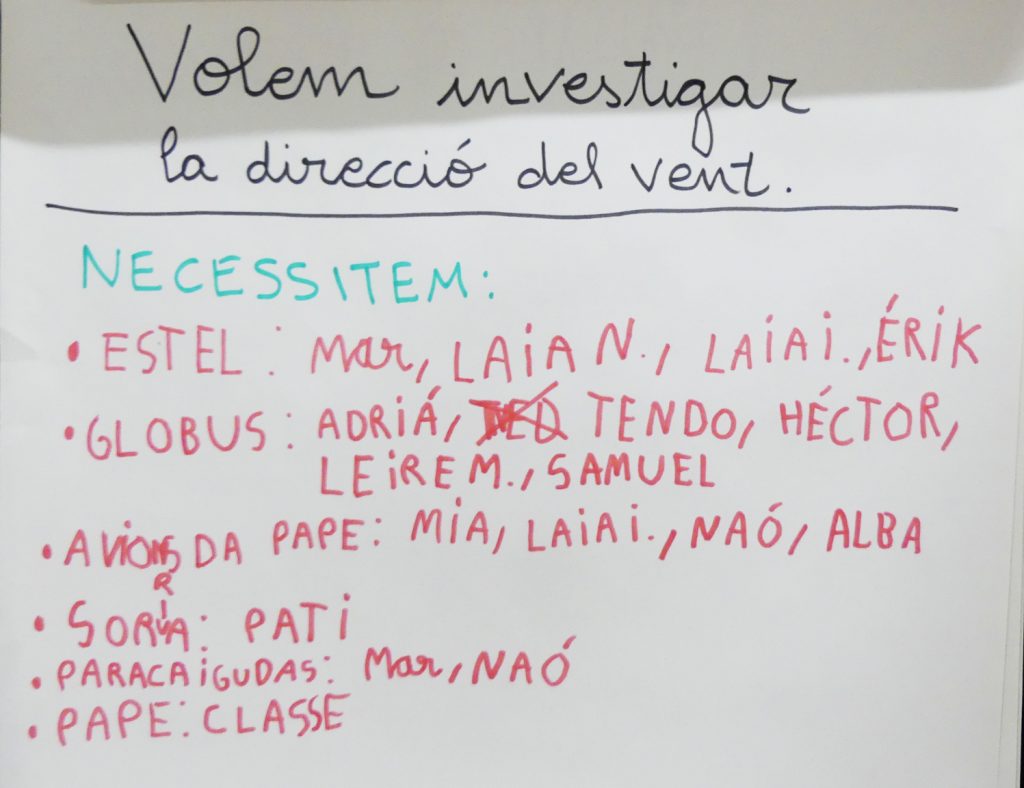 Volem investigar
la direcció del vent.
NECESSITEM:
• ESTEL: Mar, LAiA N., LAiA i., ÉRiK
• GLOBUS: ADRIÁ, TENDO, HÉCTOR,
LEiRE M., SAMUEL
• AViONS DA PAPE: MiA, LAiA i., NAÓ, ALBA
• SORRA: PATi
• PARACAiGUDAS: Mar, NAÓ
• PAPE: CLASSE